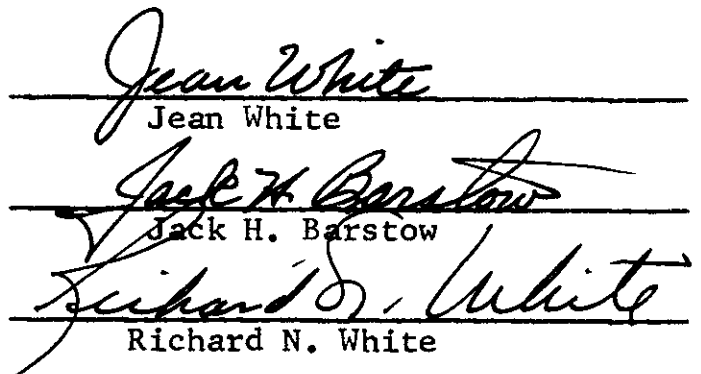 Jean White
Jean White
Jack H Barstow
Jack H. Barstow
Richard N. White
Richard N. White